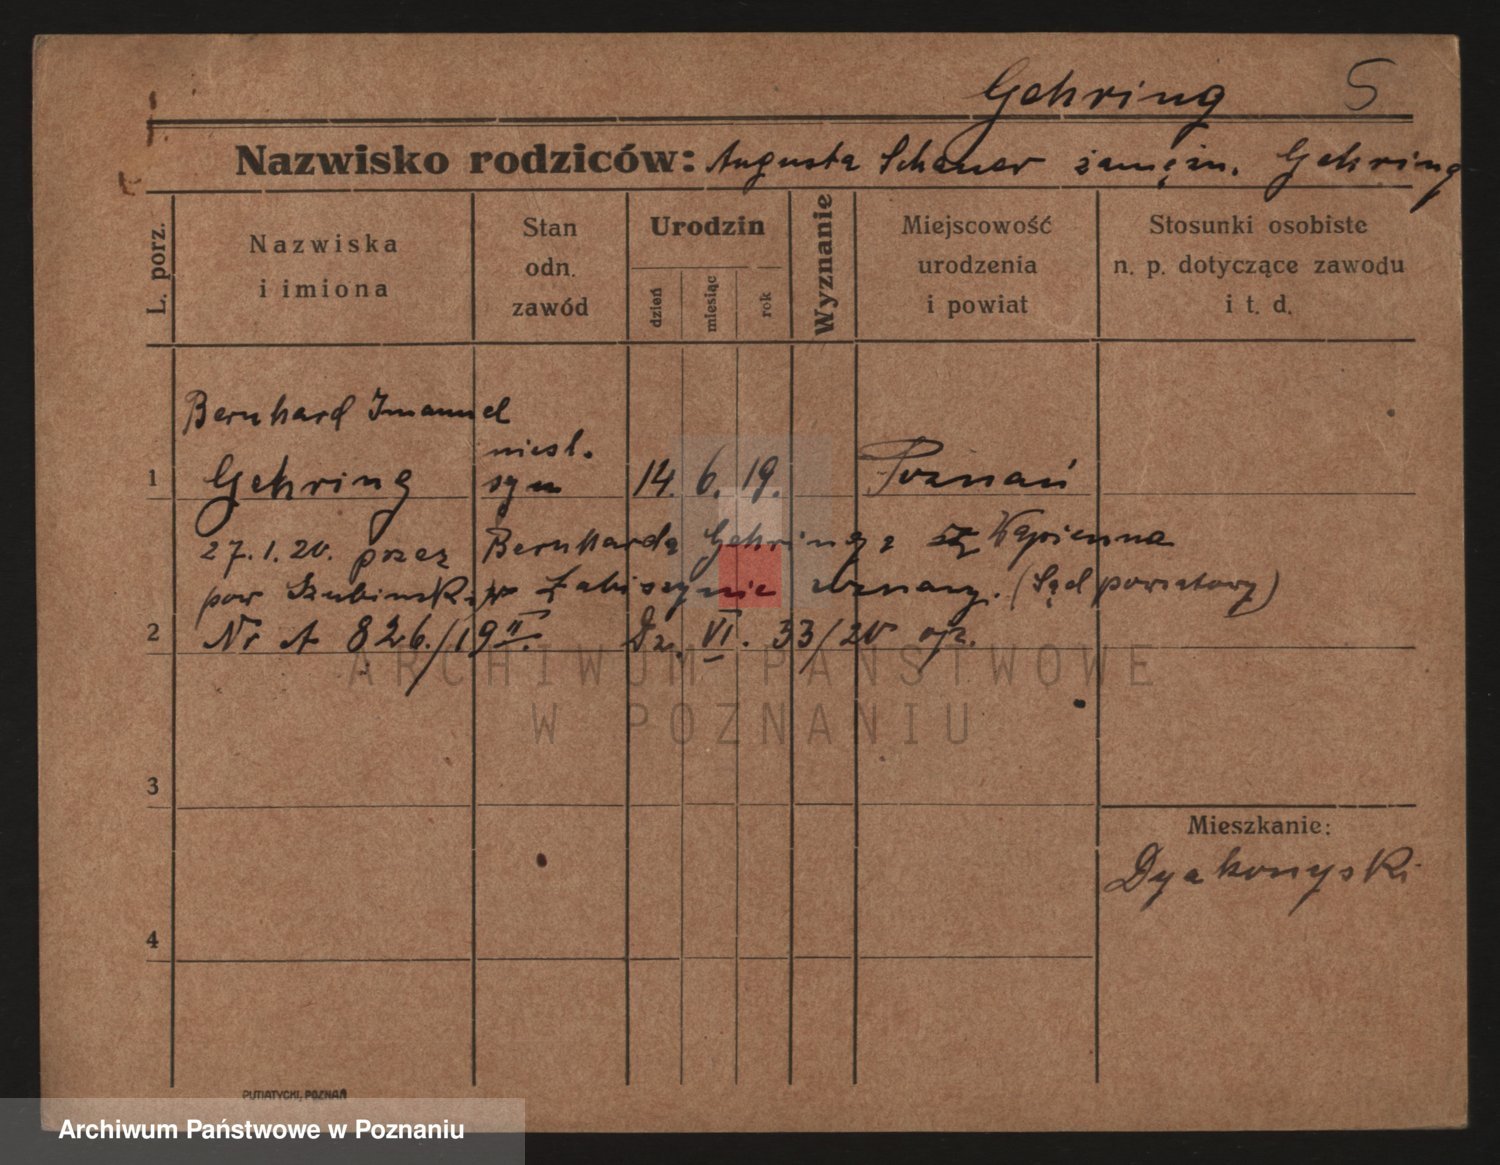 Gehring 5
Nazwisko rodziców: Augusta Schauer zamężn. Gehring
L. porz.
Nazwiska
i imiona
Stan
odn.
zawód
Urodzin
dzień
miesiąc
rok
Wyznanie
Miejscowość
urodzenia
i powiat
Stosunki osobiste
n. p. dotyczące zawodu
i t. d.
Bernhard Imanuel
niesl.
1 Gehring syn 14. 6. 19. Poznań
27.1.20. przez Bernharda Gehringa Wapienna
pow Szubinski w Łabiszynie uznany. (Sąd powiatowy)
2 Nr A 826./19 II. Dz. VI. 33/20
3
Mieszkanie:
4
PUTIATYCKI, POZNAŃ
ARCHIWUM PAŃSTWOWE
W POZNANIU
Archiwum Państwowe w Poznaniu